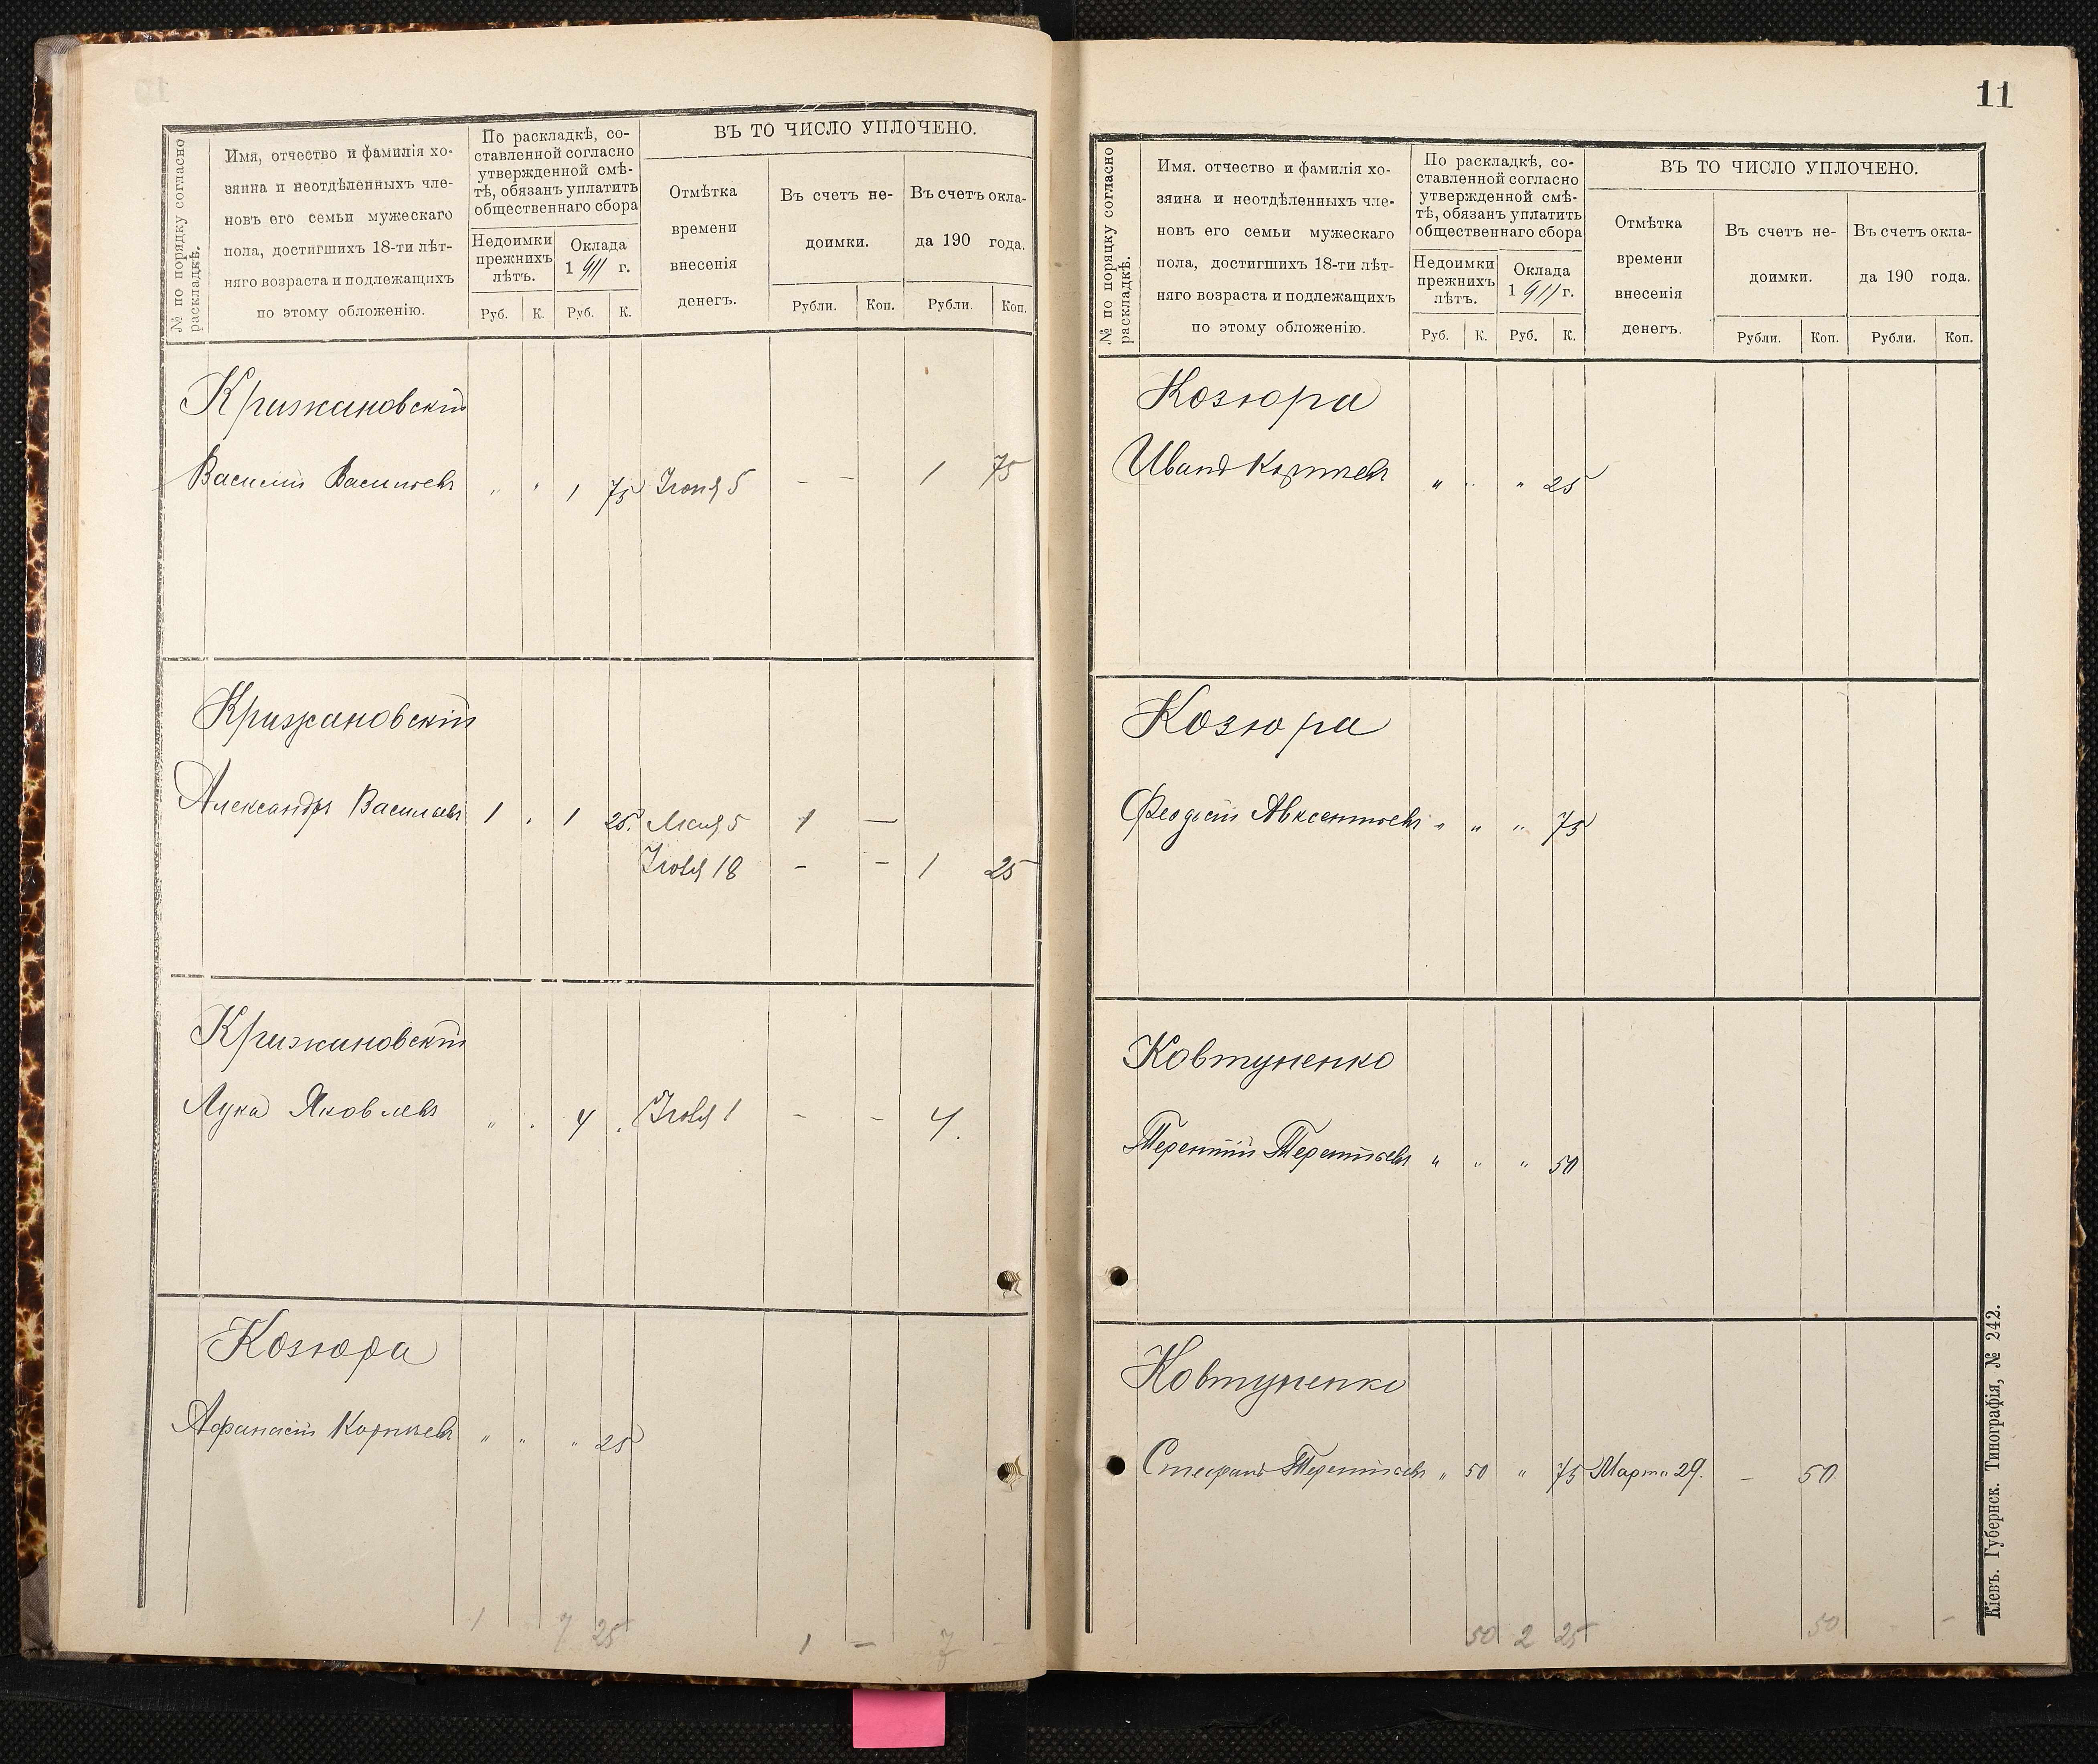 № по порядку согласно
раскладкѣ.
Имя, отчество и фамилія хо-
зяина и неотдѣленныхъ чле-
новъ его семьи мужескаго
пола, достигшихъ 18-ти лѣт-
няго возраста и подлежащихъ
по этому обложенію.
По раскладкѣ, со-
ставленной согласно
утвержденной смѣ-
тѣ, обязанъ уплатить
общественнаго сбора
Недоимки
прежнихъ
лѣтъ.
Оклада
1911 г.
Руб. К. Руб. К.
ВЪ ТО ЧИСЛО УПЛОЧЕНО.
Отмѣтка
времени
внесенія
денегъ.
Въ счетъ не-
доимки.
Въ счетъ окла-
да 190 года.
Рубли. Коп. Рубли. Коп.
Крижановскій
Василій Васильевъ „ „ 1 75 Іюня 5 - - 1 75
Крижановскій
Александръ Васильевъ 1 . 1 25. Мая 5 1 —
Іюля 18 - - 1 25
Крижановскій
Лука Яковлевъ „ . 4 . Іюля 1 - - 4.
Козюра
Афанасій Корніевъ „ „ „ 25
1 7 25 1 — 7 -
11
№ по порядку согласно
раскладкѣ.
Имя, отчество и фамилія хо-
зяина и неотдѣленныхъ чле-
новъ его семьи мужескаго
пола, достигшихъ 18-ти лѣт-
няго возраста и подлежащихъ
по этому обложенію.
По раскладкѣ, со-
ставленной согласно
утвержденной смѣ-
тѣ, обязанъ уплатить
общественнаго сбора
Недоимки
прежнихъ
лѣтъ.
Оклада
1911 г.
Руб. К. Руб. К.
ВЪ ТО ЧИСЛО УПЛОЧЕНО.
Отмѣтка
времени
внесенія
денегъ.
Въ счетъ не-
доимки.
Въ счетъ окла-
да 190 года.
Рубли. Коп. Рубли. Коп.
Козюра
Иванъ Корніевъ „ „ „ 25
Козюра
Феодосій Авксентьевъ „ „ „ 75
Ковтуненко
Терентій Терентьевъ „ „ „ 50
Ковтуненко
Стефанъ Терентьевъ „ 50 „ 75 Марта 29. - 50.
50 2 25 50 -
Кіевъ. Губернск. Типографія, № 242.